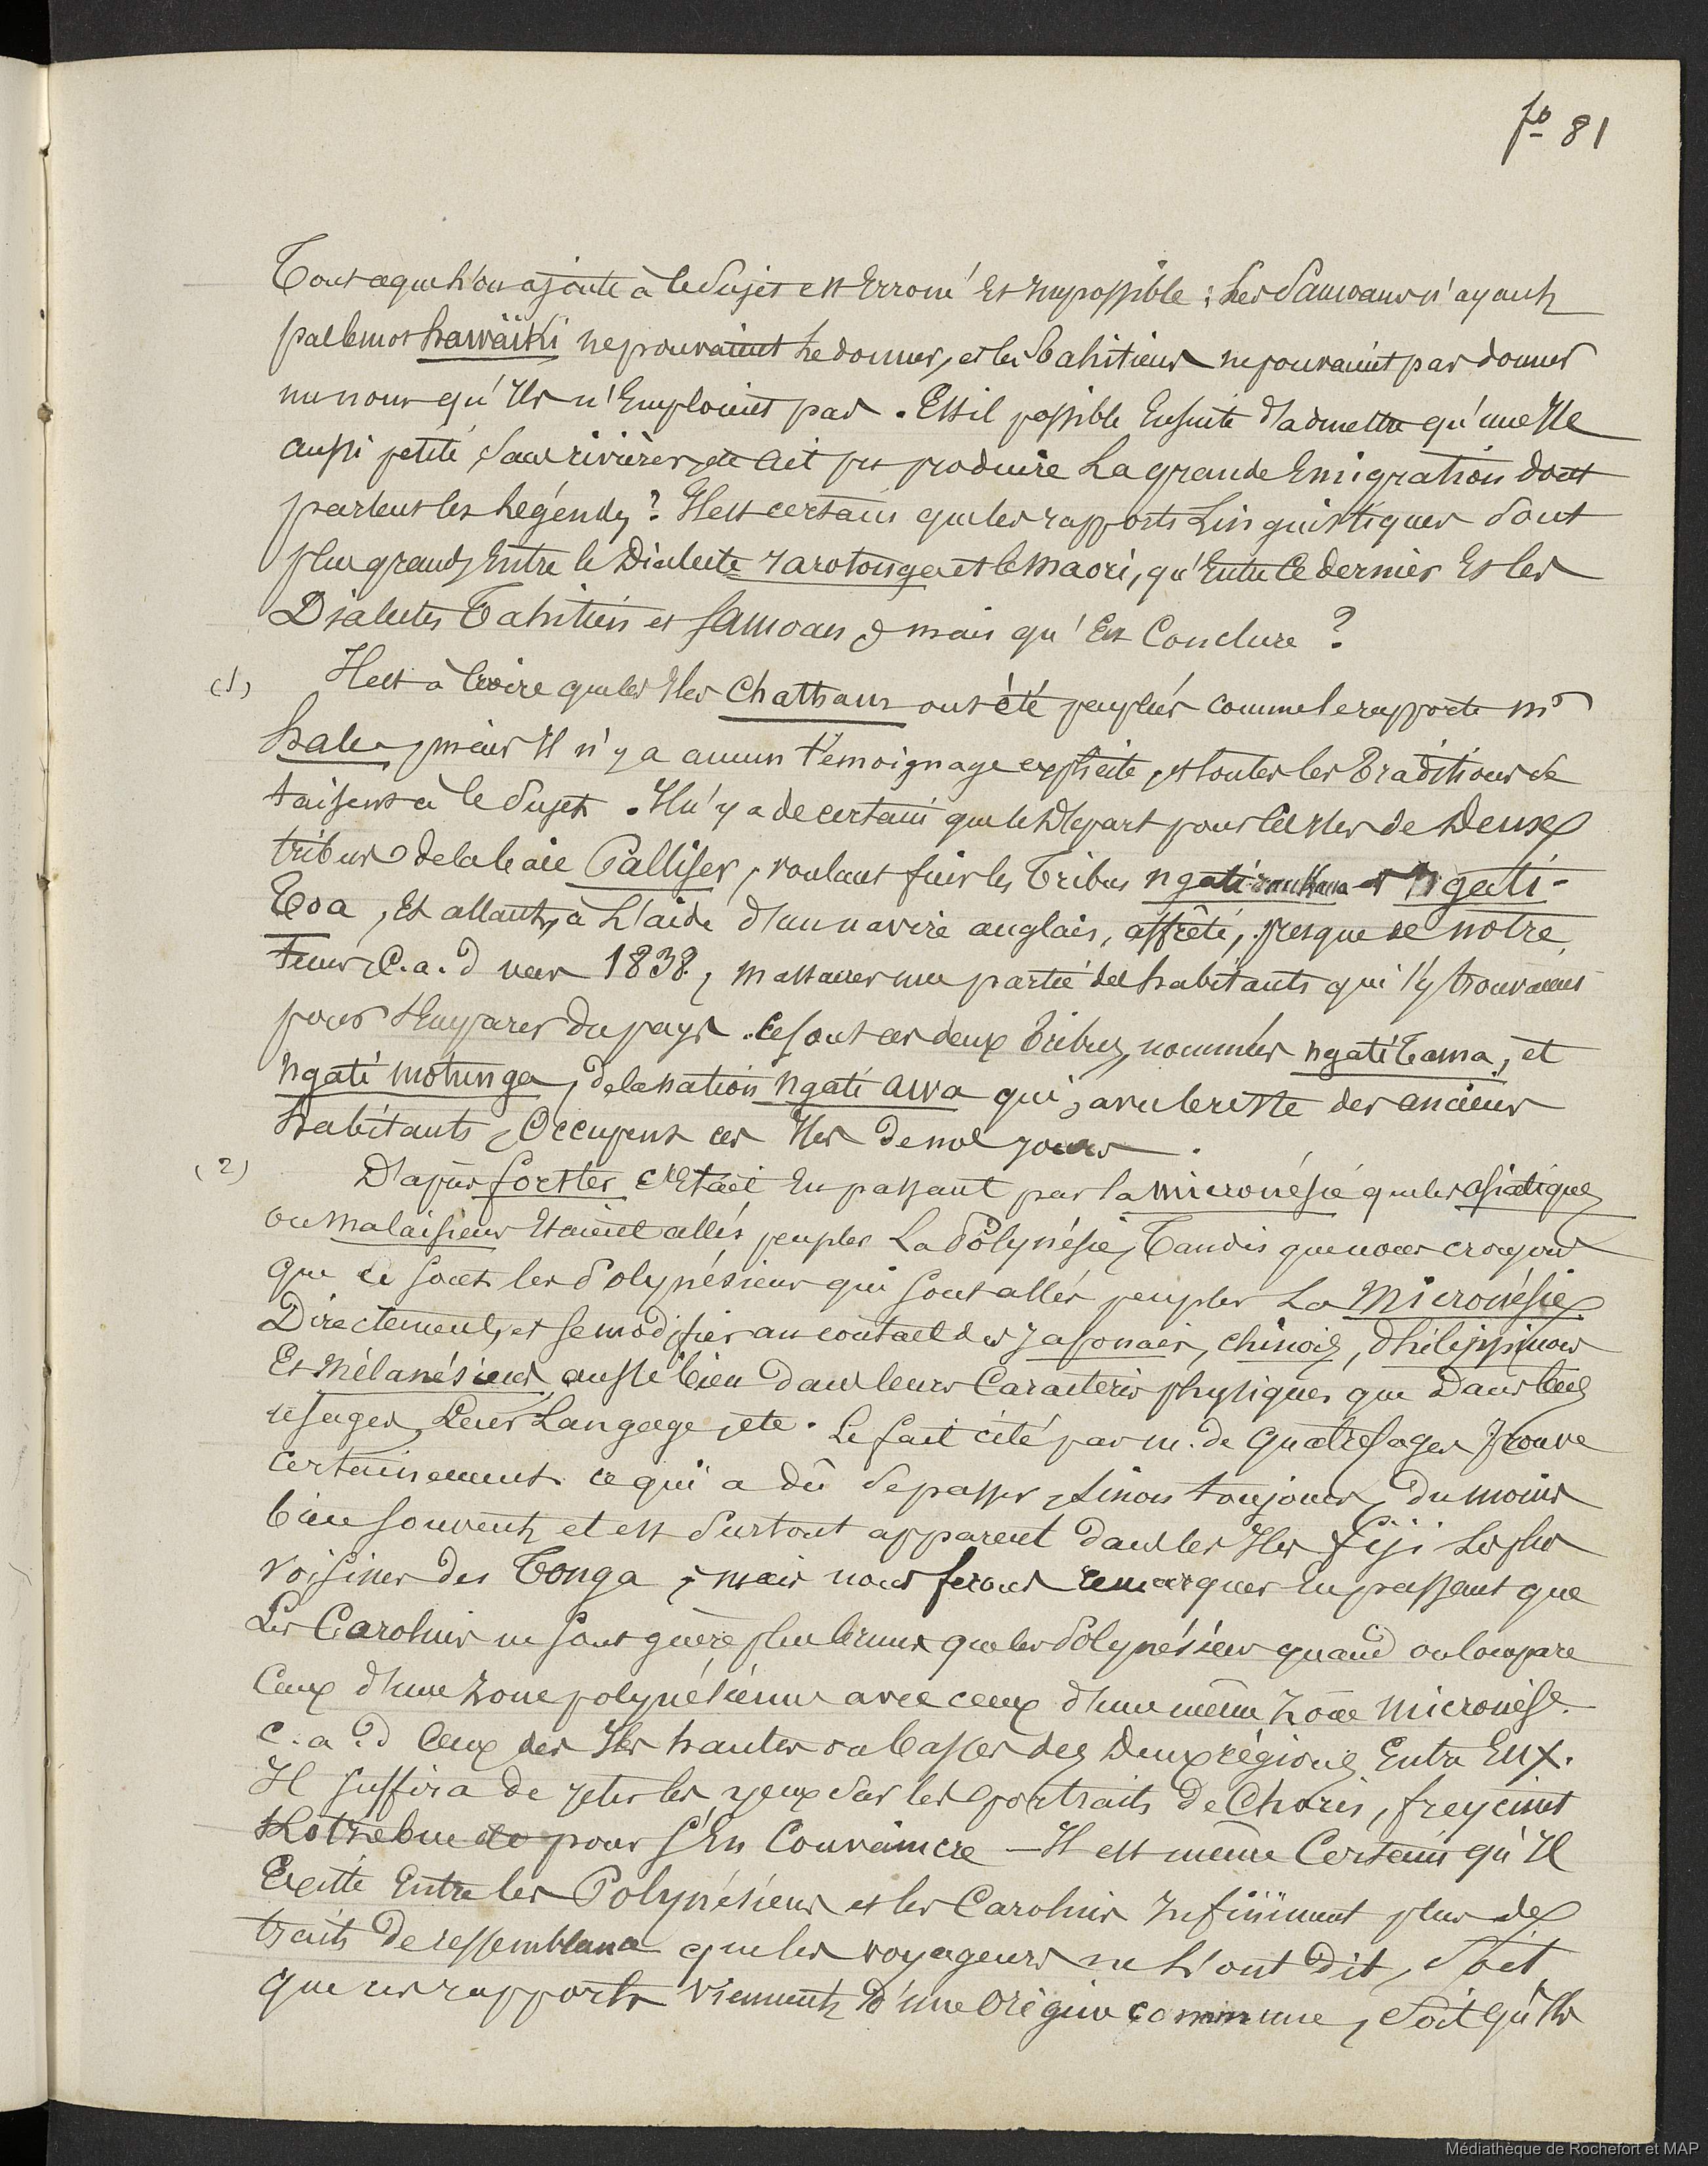 fo 81
Tout ce que l'on ajoute à ce sujet est Erroné Et Impossible ; Les Samoans n'ayant
pas le mot hawaïki ne pouvaient Le donner, et les Tahitiens ne pouvaient pas donner
un nom qu'Ils n'Emploient pas . Est il possible Ensuite d'admettre qu'une Ile
aussi petite, sans rivières, etc ait pu produire La grande Emigration dont
parlent les Légendes ? Il est certain que les rapports Linguistiques sont
plus grands Entre le Dialecte rarotonga et le Maori, qu'Entre Ce dernier Et les
Dialectes Tahitien et Samoan ; mais qu'En Conclure ?
(1) Il est à Croire que les Iles Chatham ont été peuplées comme le rapporte mr
hale, mais Il n'y a aucun témoignage explicite, et toutes les Traditions se
taisent à ce sujet . Il n'y a de certain que le Départ pour ces Iles de Deux
tribus de la baie Palliser, voulant fuir les Tribus ngati et Ngati-
Toa, Et allant, à L'aide d'un navire anglais, affrêté, presque de notre
tems, C.a.d vers 1838, massacrer une partie des habitants qui s'y trouvaient
pour s'Emparer du pays . Ce sont ces deux Tribus, nommées ngati Tama, et
Ngati motunga, de la nation Ngati awa qui, avec le reste des anciens
habitants, Occupent ces Iles de nos jours .
(2) D'après forster c'Etait En passant par la micronésie que les asiatiques
ou malaisiens Etaient allés peupler La Polynésie, Tandis que nous croyons
que ce sont les Polynésiens qui sont allés peupler La Micronésie
Directement, et se modifier au contact des japonais, chinois, philippinois
Et Mélanésiens, aussi bien dans leurs Caractères physiques que Dans leurs
usages, Leur Langage, etc . Le fait cité par m. de Quatrefages prouve
certainement ce qui a dû se passer, sinon toujours, du moins
bien souvent, et est surtout apparent dans les Iles fiji les plus
voisines des Tonga ; mais nous ferons remarquer En passant que
Les Carolins ne sont guère plus bruns que les Polynésiens quand on compare
Ceux d'une zone polynésienne avec ceux d'une même zone Micronés.
c.a.d Ceux des Iles hautes ou basses des Deux régions Entre Eux.
Il suffira de jeter les yeux sur les portraits de Choris, freycinet
Kotzebue etc pour s'En Convaincre — Il est même Certain qu'Il
Existe Entre les Polynésiens et les Carolins Infiniment plus de
traits de ressemblance que les voyageurs ne L'ont dit, Soit
que ces rapports viennent d'une Origine commune, Soit qu'Ils
Médiathèque de Rochefort et MAP